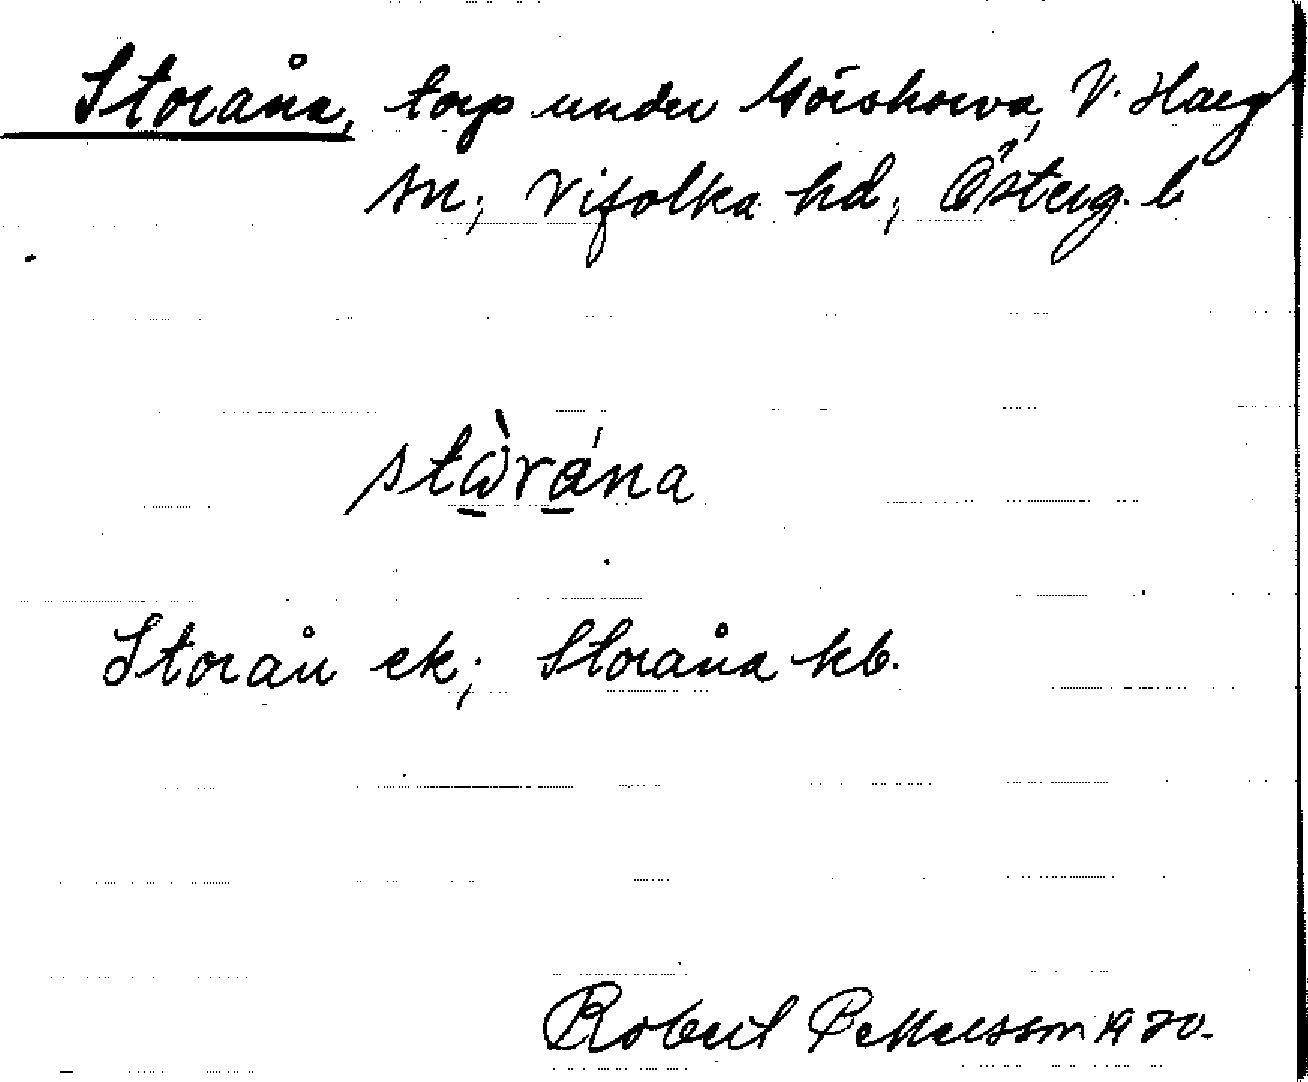 Storåna, torp under Görskorva, V. Harg
sn; Vifolka hd; Österg. l
stὼrána
Storån ek; Storåna kb.
Robert Pettersson 1920.